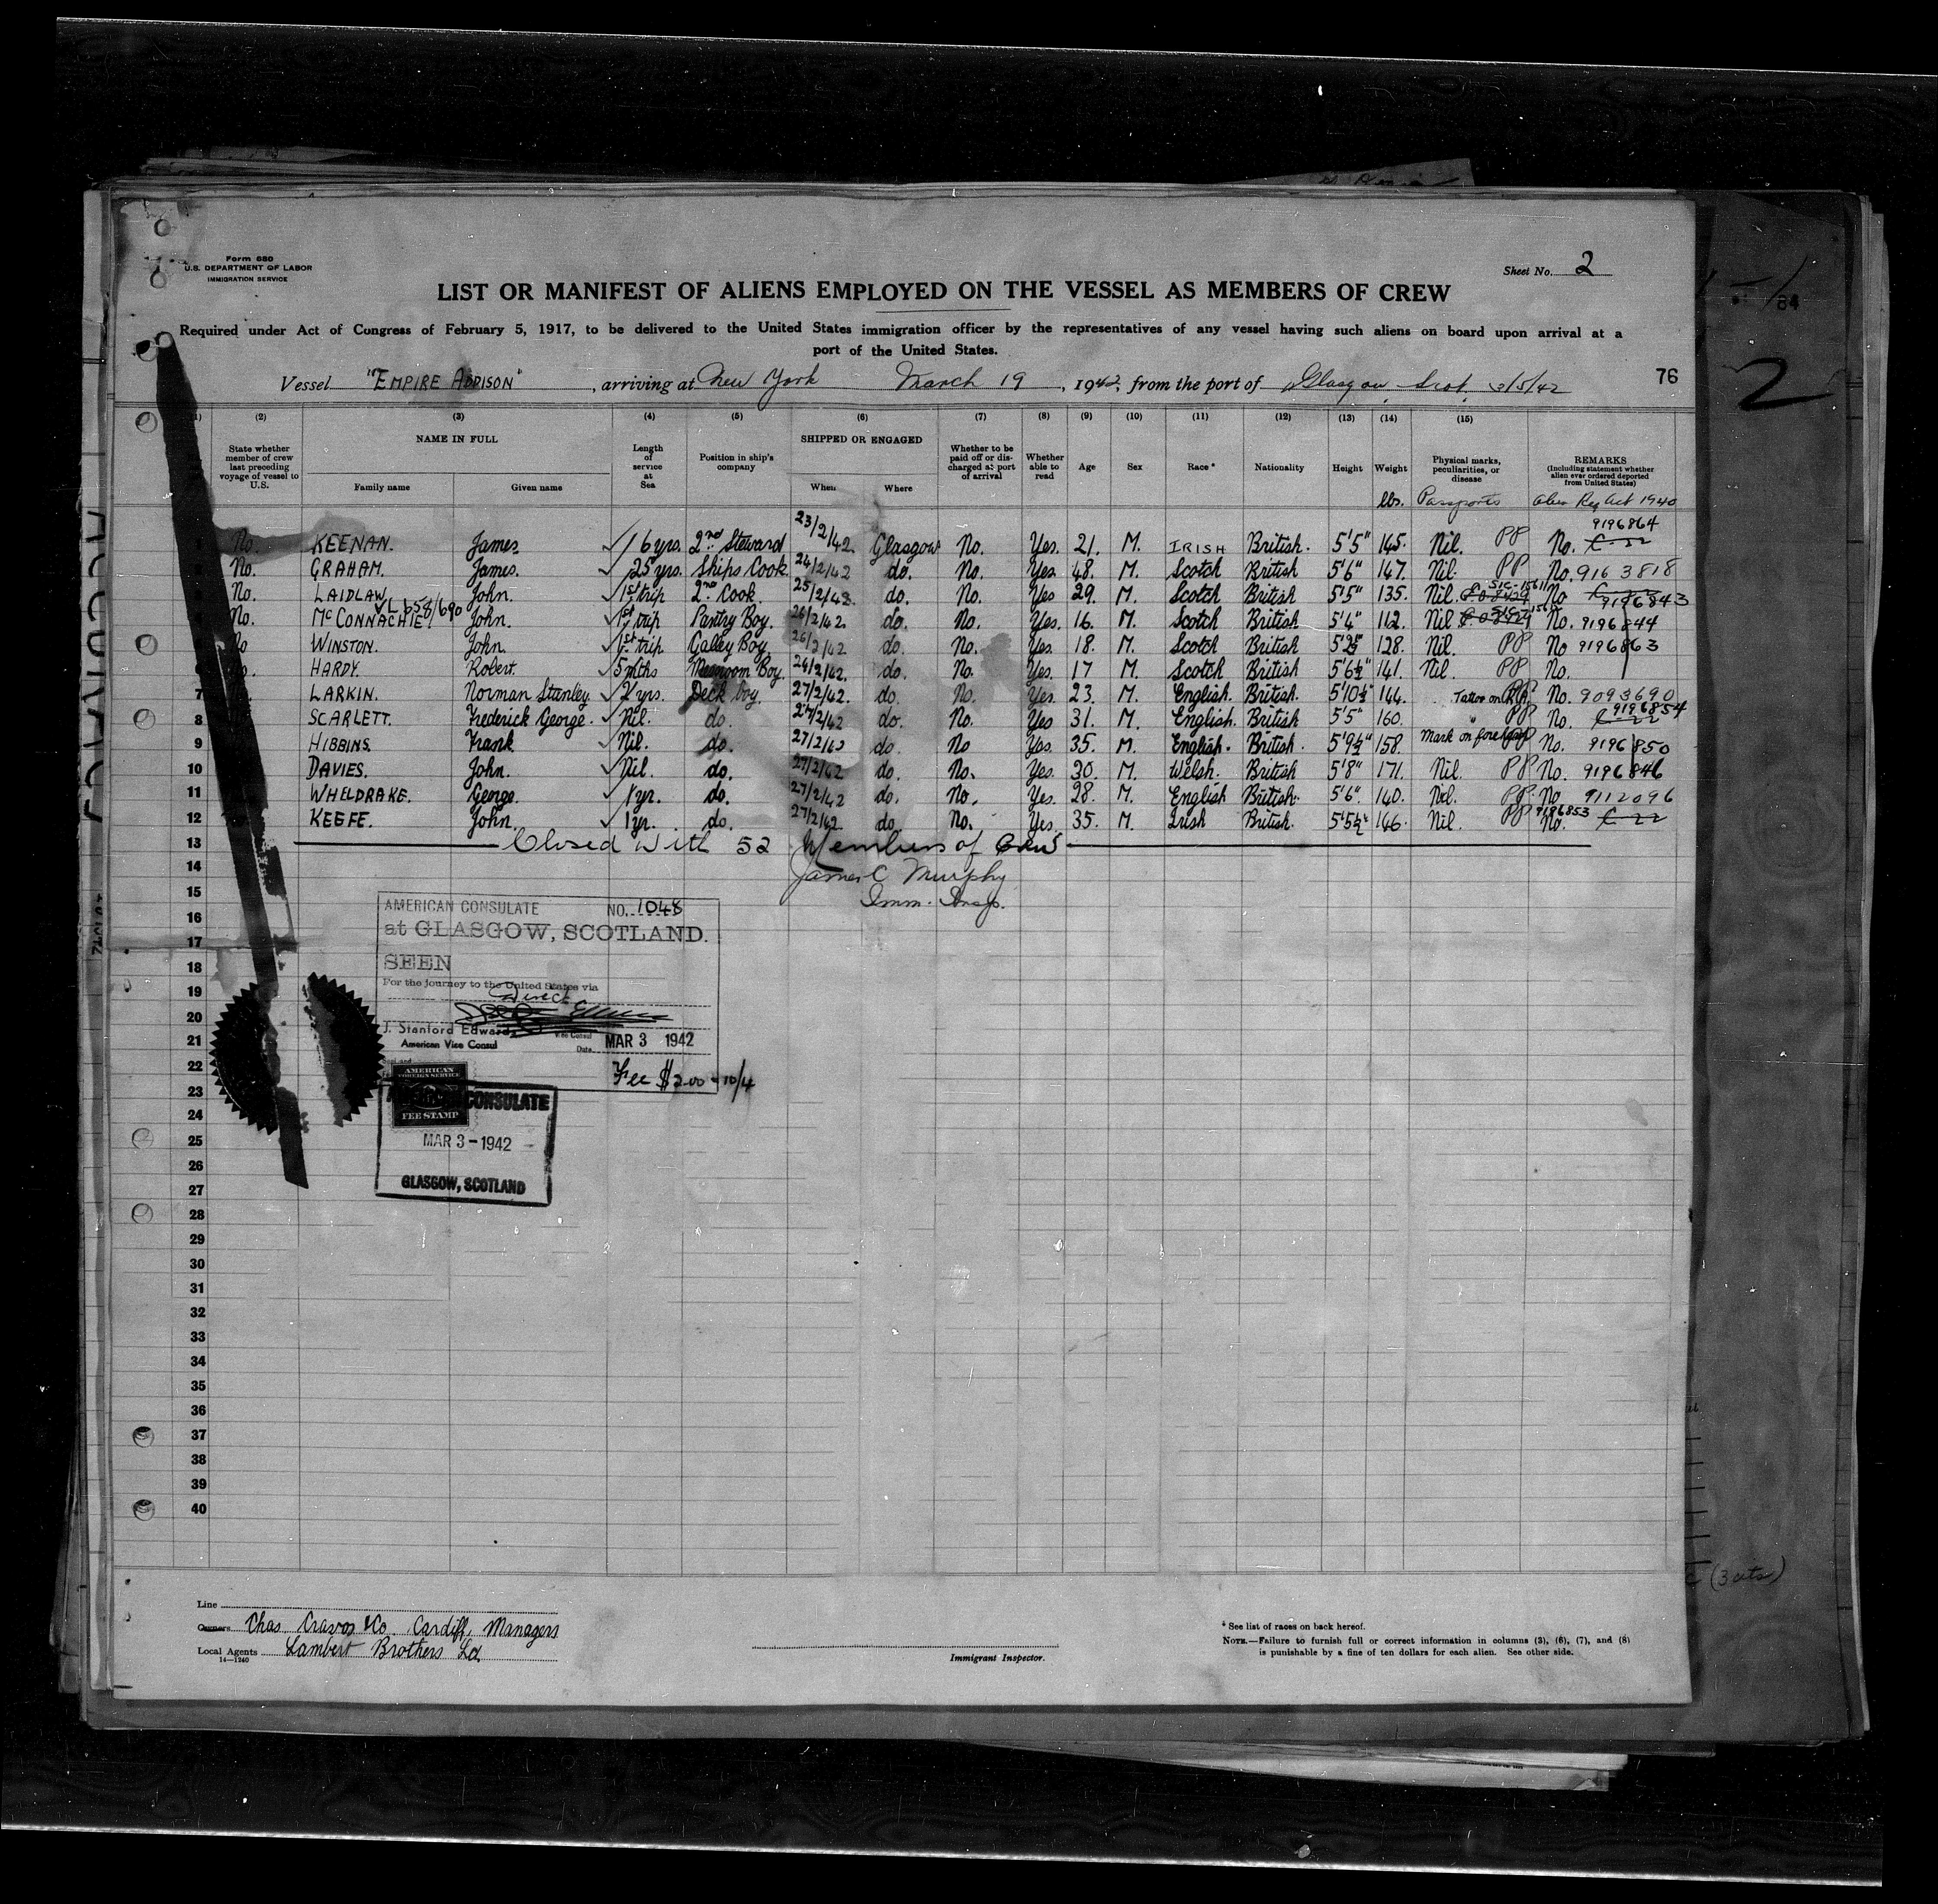 Form 680
U.S. DEPARTMENT OF LABOR
IMMIGRATION SERVICE
Sheet No. 2
LIST OR MANIFEST OF ALIENS EMPLOYED ON THE VESSEL AS MEMBERS OF CREW
Required under Act of Congress of February 5, 1917, to be delivered to the United States immigration officer by the representatives of any vessel having such aliens on board upon arrival at a
port of the United States.
Vessel "EMPIRE ADDISON", arriving at New York March 19, 1942, from the port of Glasgow, Scot, 3/5/42
76
(2) (3) (4) (5) (6) (7) (8) (9) (10) (11) (12) (13) (14) (15)
State whether member of crew last preceding voyage of vessel to U.S. NAME IN FULL Family name Given name Length of service at Sea Position in ship's company SHIPPED OR ENGAGED When Where Whether to be paid off or discharged at port of arrival Whether able to read Age Sex Race* Nationality Height Weight Physical marks, peculiarities, or disease REMARKS (Including statement whether alien ever ordered deported from United States)
lbs. Passports Alien Reg Act 1940
No. KEENAN. James 6 yrs. 2nd Steward 23/2/42 Glasgow No. Yes. 21. M. IRISH British. 5'5" 145. Nil. PP No. 9196864
No. GRAHAM. James. 25 yrs. Ships Cook 24/2/42 do. No. Yes 48. M. Scotch British 5'6" 147. Nil. PP No. 9163818
No. LAIDLAW John. 1st trip 2nd Cook. 25/2/42 do. No. Yes 29. M. Scotch British 5'5" 135. Nil. No 9196843
No. McCONNACHIE. VL 658/690 John. 1st trip Pantry Boy. 26/2/42. do. No. Yes. 16. M. Scotch British 5'4" 112. Nil No. 9196844
No WINSTON. John. 1st trip Galley Boy. 26/2/42 do. No. Yes. 18. M. Scotch British 128. Nil. PP No 9196863
HARDY. Robert. 5 mths Messroom Boy. 26/2/42. do. No. Yes. 17 M. Scotch British 5'6½" 141. Nil PP No.
7 LARKIN. Norman Stanley. 2 yrs. Deck boy. 27/2/42. do. No. Yes. 23. M. English. British. 5'10½" 144. Tattoo on No. 9093690
8 SCARLETT. Frederick George. Nil. do. 27/2/42 do. No. Yes 31. M. English. British 5'5" 160. " PP No. 9196854
9 HIBBINS. Frank Nil. do. 27/2/42 do. No Yes. 35. M. English. British. 5'9½" 158. Mark on PP No. 9196850
10 DAVIES. John. Nil. do. 27/2/42 do. No. Yes. 30. M. Welsh. British 5'8" 171. Nil. PP No. 9196846
11 WHELDRAKE. George. 1 yr. do. 27/2/42 do. No. Yes. 28. M. English British 5'6". 140. Nil. PP. No 9112096
12 KEEFE. John. 1 yr. do. 27/2/42. do. No. Yes 35. M. Irish British. 5'5½" 146. Nil. PP No. 9196853
13 Closed With 52 Members of Crew
14 James C Murphy
15 Imm. Insp.
16
17
18
19
20
21
22
23
24
25
26
27
28
29
30
31
32
33
34
35
36
37
38
39
40
AMERICAN CONSULATE NO. 1048
at GLASGOW, SCOTLAND.
SEEN
For the journey to the United States via
Direct
J. Stanford Edwards
American Vice Consul
Date MAR 3 1942
Fee $2.00 = 10/4
AMERICAN
FOREIGN SERVICE
FEE STAMP
CONSULATE
MAR 3 - 1942
GLASGOW, SCOTLAND
2
84
(3 cuts)
Line
Owners Chas Cravos & Co. Cardiff, Managers
Local Agents Lambert Brothers Ld.
14—1240
Immigrant Inspector.
* See list of races on back hereof.
NOTE.—Failure to furnish full or correct information in columns (3), (6), (7), and (8)
is punishable by a fine of ten dollars for each alien. See other side.